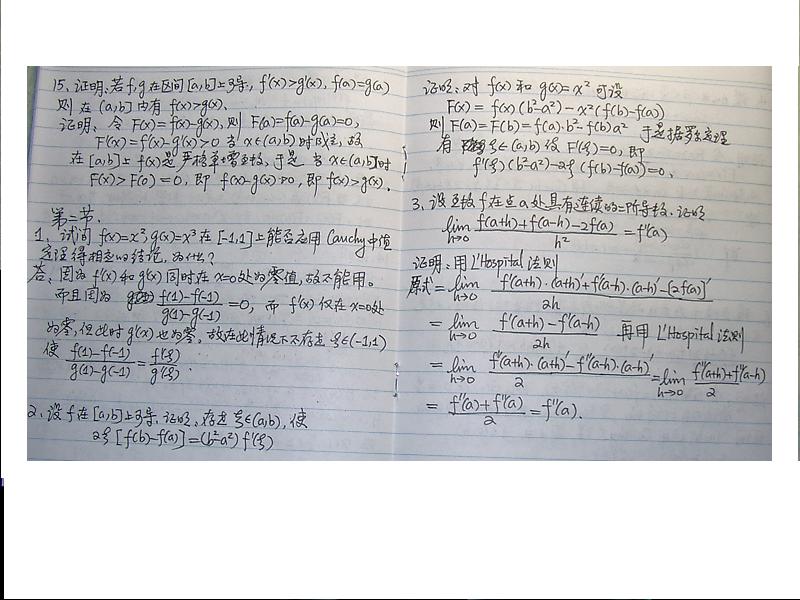 15、证明、若f,g在区间[a,b]上可导，f'(x)>g'(x)，f(a)=g(a)
则在(a,b]内有f(x)>g(x)、
证明、令F(x)=f(x)-g(x)，则F(a)=f(a)-g(a)=0，
F'(x)=f'(x)-g'(x)>0当x∈(a,b)时成立，故
在[a,b]上f(x)是严格单增函数，于是当x∈(a,b]时
F(x)>F(a)=0，即f(x)-g(x)>0，即f(x)>g(x)．
第二节、
1、试问f(x)=x²，g(x)=x³在[-1,1]上能否应用Cauchy中值
定理得相应的结论，为什么？
答、因为f'(x)和g'(x)同时在x=0处为零值，故不能用。
而且因为 f(1)-f(-1)/g(1)-g(-1) =0，而f'(x)仅在x=0处
为零，但此时g'(x)也为零，故在此情况下不存在ξ∈(-1,1)
使 f(1)-f(-1)/g(1)-g(-1) = f'(ξ)/g'(ξ)．
2、设f在[a,b]上可导、证明、存在ξ∈(a,b)，使
2ξ[f(b)-f(a)]=(b²-a²)f'(ξ)
证明、对f(x)和g(x)=x²可设
F(x)=f(x)(b²-a²)-x²(f(b)-f(a))
则F(a)=F(b)=f(a)·b²-f(b)a² 于是据罗尔定理
有ξ∈(a,b)使F'(ξ)=0，即
f'(ξ)(b²-a²)-2ξ(f(b)-f(a))=0、
3、设函数f在点a处具有连续的二阶导数、证明
lim h→0 f(a+h)+f(a-h)-2f(a)/h² =f''(a)
证明、用L'Hospital法则
原式=lim h→0 f'(a+h)·(a+h)'+f'(a-h)·(a-h)'-[2f(a)]'/2h
=lim h→0 f'(a+h)-f'(a-h)/2h 再用L'Hospital法则
=lim h→0 f''(a+h)·(a+h)'-f''(a-h)·(a-h)'/2 =lim h→0 f''(a+h)+f''(a-h)/2
= f''(a)+f''(a)/2 =f''(a)．